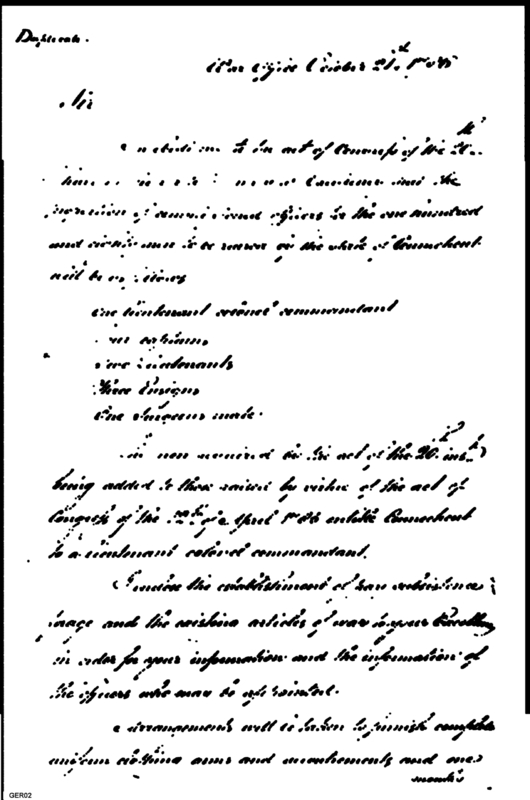 Duplicate.
War Office October 21st 1786
Sir
to an act of Congress of the 20th
the
proportion of commissioned officers to the one hundred
and eighty men to be raised by the state of Connecticut
will be as follows
One lieutenant colonel commandant
Four captains
Five Lieutenants
Three Ensigns
One Surgeons mate.
The men required by the act of the 20th inst.
being added to those raised by virtue of the act of
Congress of the of April 1785 entitle Connecticut
to a lieutenant colonel commandant.
I enclose the establishment of pay subsistence
forage and the existing articles of war to your Excellency
in order for your information and the information of
the officers who may be appointed.
arrangements will be taken to furnish complete
uniform clothing arms and accoutrements and one
months
GER02